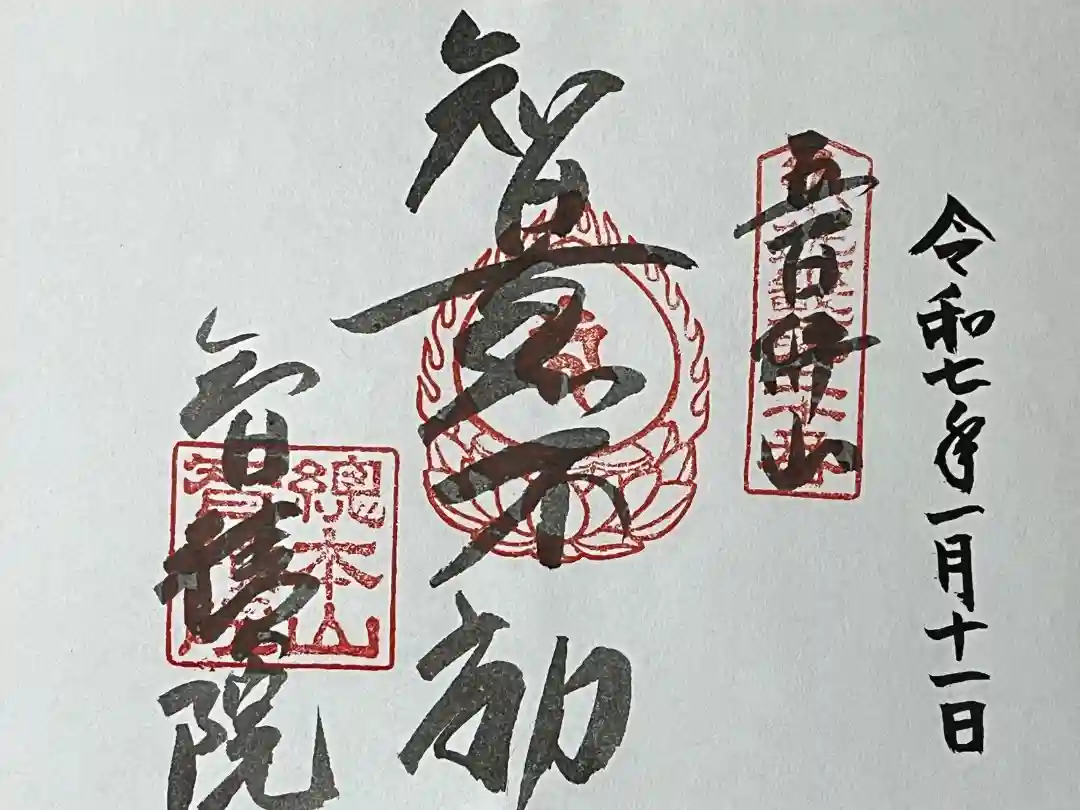 令和七年一月十一日
五百佛山
智恵不動
智積院
總本山